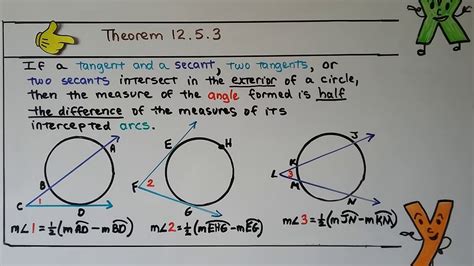 Theorem 12.5.3
If a tangent and a secant, two tangents, or
two secants intersect in the exterior of a circle,
then the measure of the angle formed is half
the difference of the measures of its
intercepted arcs.
A
B
C
D
1
E
H
F
2
G
J
K
L
3
M
N
m∠1 = ½(mAD − mBD)
m∠2 = ½(mEHG − mEG)
m∠3 = ½(mJN − mKM)